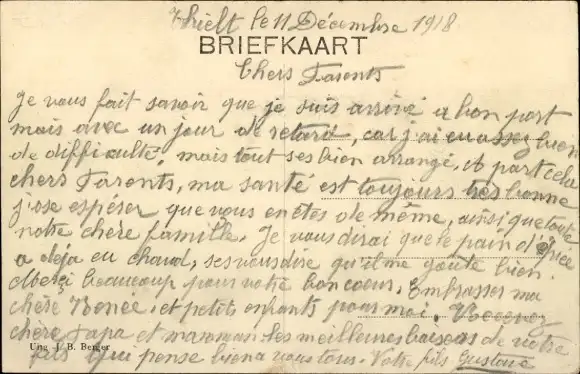 Thielt le 11 Décembre 1918
BRIEFKAART
Chers Parents
Je vous fait savoir que je suis arrivé a bon port
mais avec un jour de retard, car j'ai eu assez bien
de difficulté, mais tout ses bien arrangé, et part cela
chers Parents, ma santé est toujours très bonne
j'ose espérer que vous en êtes de même, ainsi que toute
notre chère famille. Je vous dirai que le pain d'épice
a déja eu chaud, ses vous dire qu'il me goûte bien.
Merci beaucoup pour votre bon coeur. Embrasser ma
chère Renée et petits enfants pour moi. Recevez
chère Papa et maman les meilleures baisers de votre
fils qui pense bien a vous tous. Votre fils Gustave
Uitg. J. B. Berger